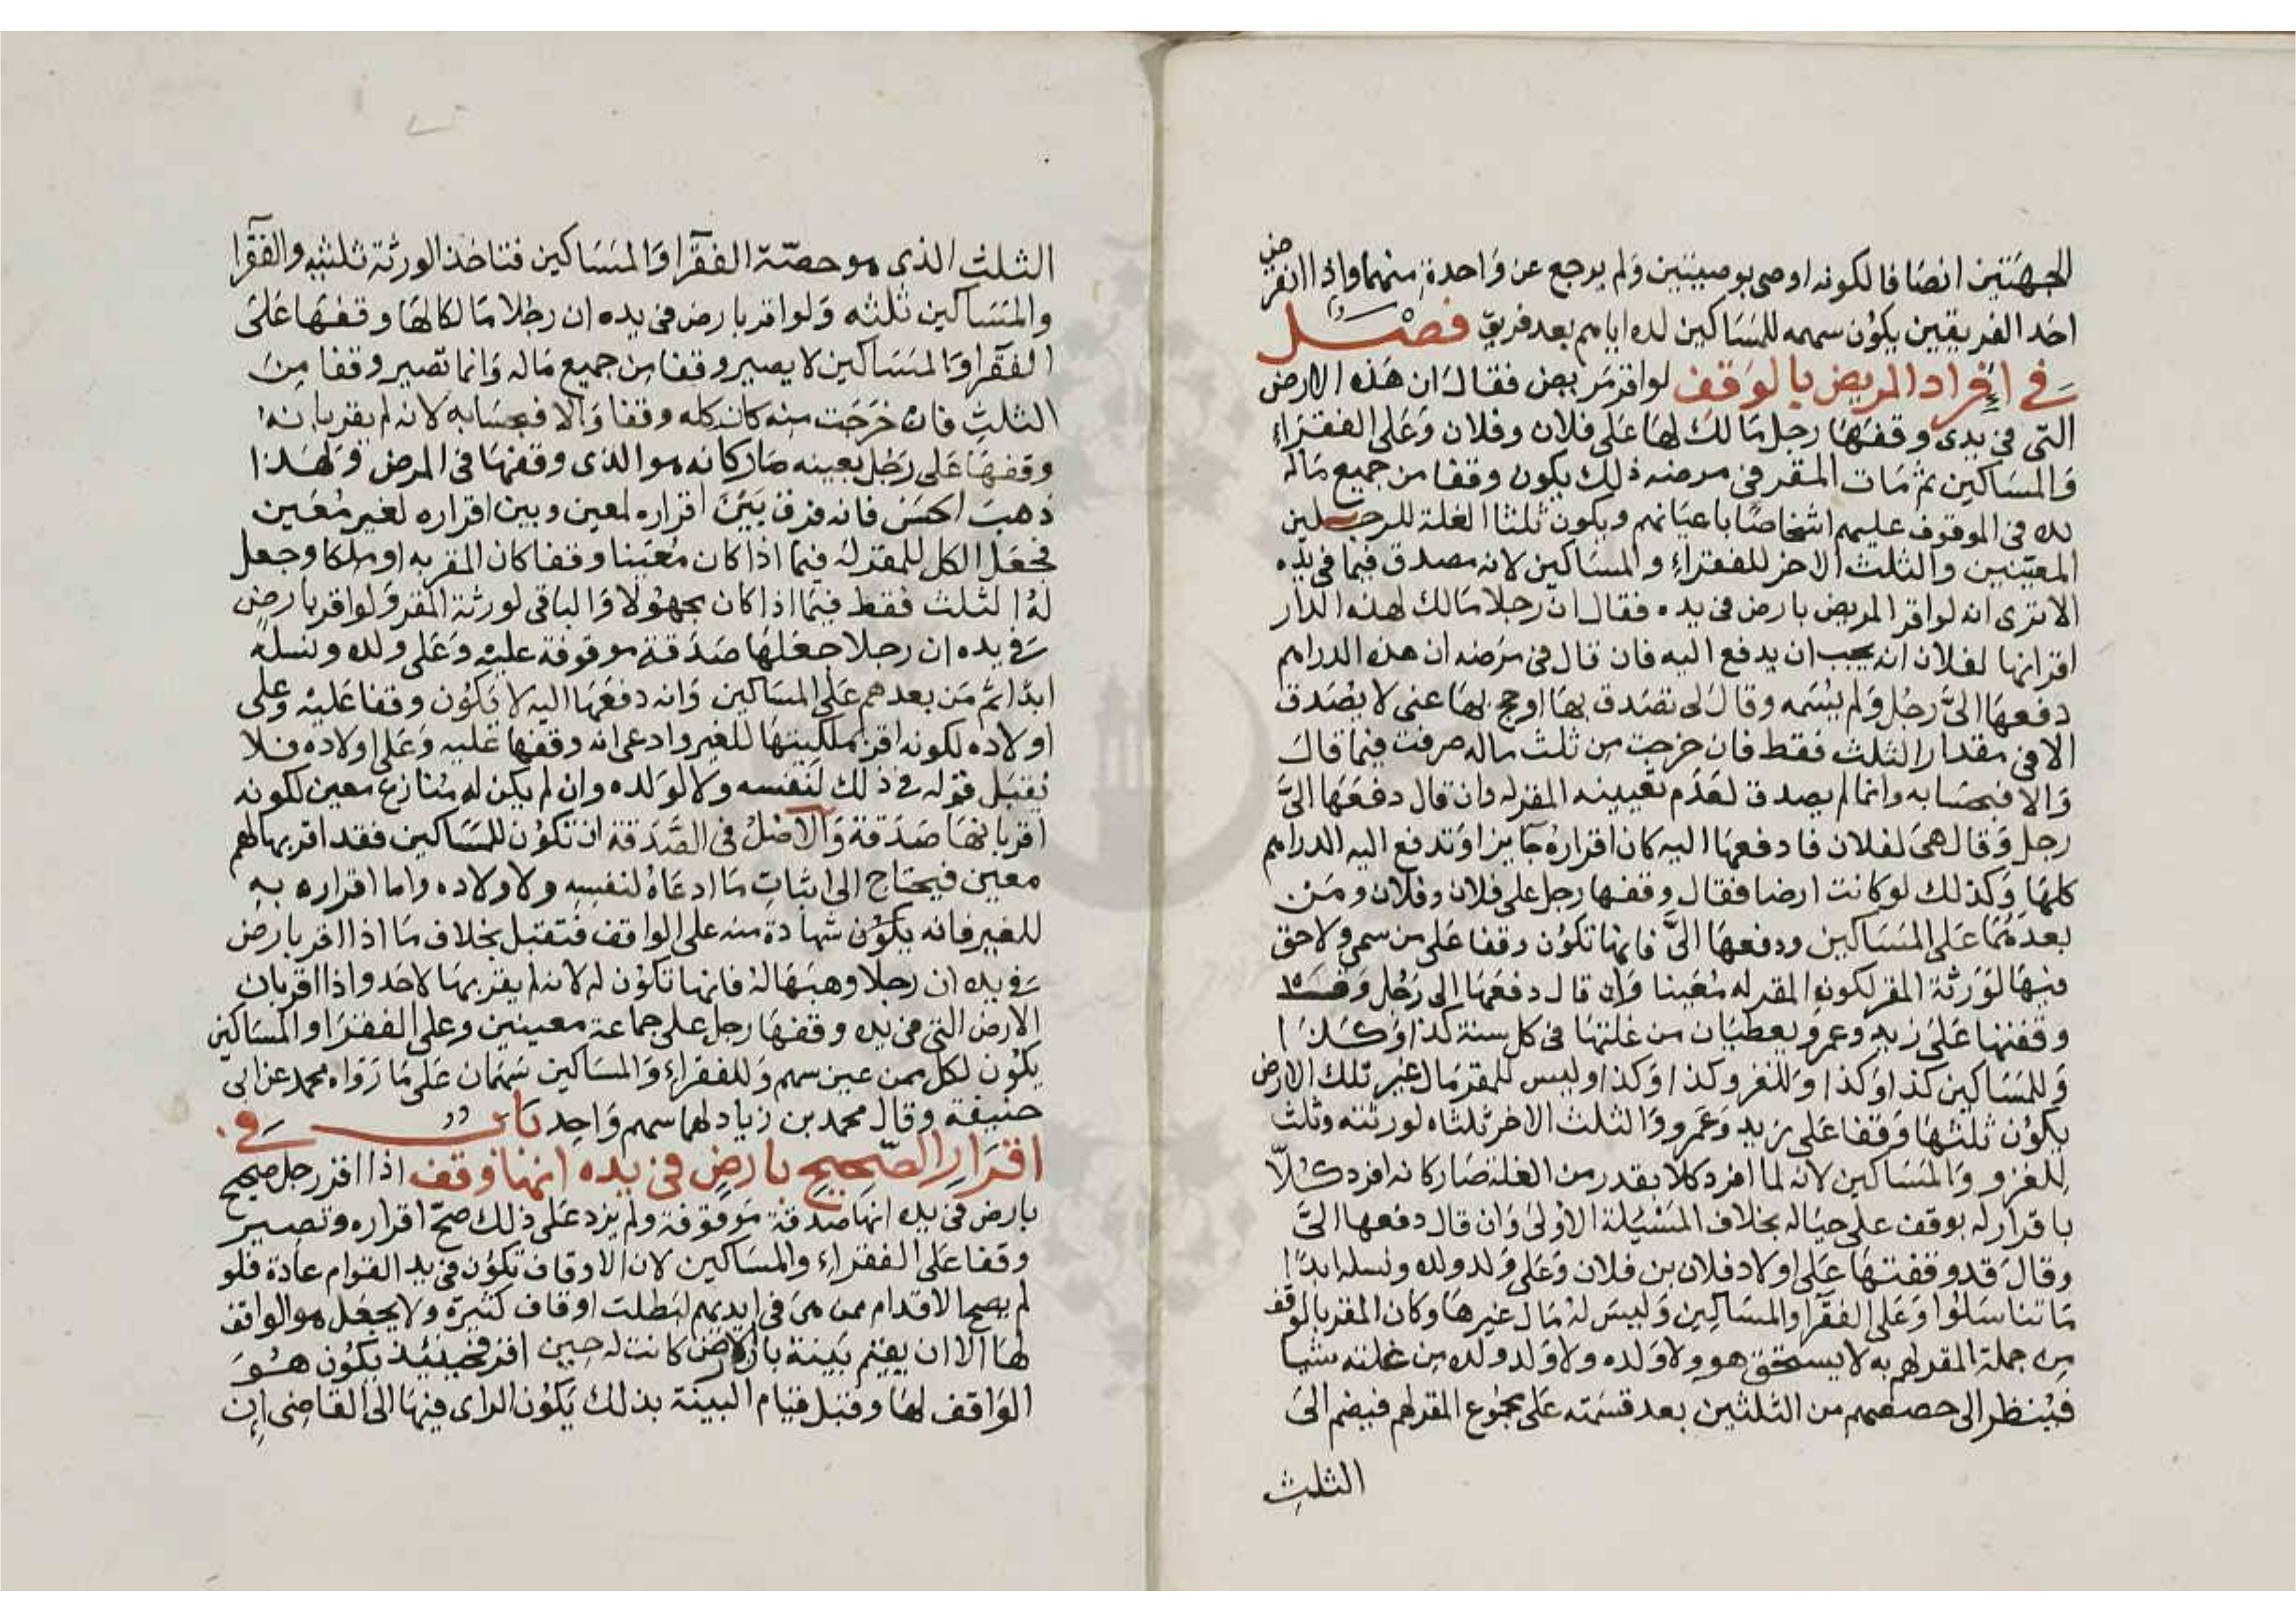 الجهتين انصافا لكونه اوصى بوصيتين ولم يرجع عن واحدة منهما واذا انقرض
احد الفريقين يكون سهمه للمساكين لدايامهم بعد فريق فصل
في اقرار المريض بالوقف لو اقر مريض فقال ان هذه الارض
التي في يدي وقفها رجل مالك لها على فلان وفلان وعلى الفقراء
والمساكين ثم مات المقر في مرضه ذلك يكون وقفا من جميع ماله
لده في الموقوف عليهم اشخاصا باعيانهم ويكون ثلثا الغلة للرجلين
المعينين والثلث الاخر للفقراء والمساكين لانه مصدق فيما في يده
الا ترى انه لو اقر المريض بارض في يده فقال ان رجلا مالك لهذه الدار
اقر انها لفلان انه يجب ان يدفع اليه فان قال في مرضه ان هذه الدراهم
دفعها الي رجل ولم يسمه وقال لي تصدق بها او حج بها عني لا يصدق
الا في مقدار الثلث فقط فان خرجت من ثلث ماله صرفت فيما قال
والا فبحسابه وانما لم يصدق لعدم تعيينه المقر له وان قال دفعها الي
رجل وقال هي لفلان فادفعها اليه كان اقراره جايزا وتدفع اليه الدراهم
كلها وكذلك لو كانت ارضا فقال وقفها رجل على فلان وفلان ومن
بعدهما على المساكين ودفعها الي فانها تكون وقفا على من سمى ولا حق
فيها لورثة المقر لكون المقر له معينا وان قال دفعها الي رجل وقال
وقفتها على زيد وعمرو يعطيان من غلتها في كل سنة كذا وكذا
وللمساكين كذا وكذا وللغزو كذا وكذا وليس للمقر مال غير تلك الارض
يكون ثلثها وقفا على زيد وعمرو والثلث الاخر ثلثاه لورثته وثلث
للغزو والمساكين لانه لما افرد كلا بقدر من الغلة صار كانه افرد كلا
باقرار له بوقف على حياله بخلاف المسئلة الاولى وان قال دفعها الي
وقال قد وقفتها على اولاد فلان بن فلان وعلى ولد ولده ونسله ابدا
ما تناسلوا وعلى الفقرا والمساكين وليس له مال غيرها وكان المقر بالوقف
من جملة المقر لهم به لا يستحق هو ولا ولده ولا ولد ولده من غلته شيا
فينظر الى حصصهم من الثلثين بعد قسمته على مجموع المقر لهم فيضم الى
الثلث
الثلث الذي هو حصة الفقرا والمساكين فتاخذ الورثة ثلثيه والفقرا
والمساكين ثلثه ولو اقر بارض في يده ان رجلا مالكا لها وقفها على
الفقرا والمساكين لا يصير وقفا من جميع ماله وانما تصير وقفا من
الثلث فان خرجت منه كان كله وقفا والا فبحسابه لانه لم يقر بانه
وقفها على رجل بعينه صار كانه هو الذي وقفها في المرض ولهذا
ذهب الحسن فانه فرق بين اقراره لمعين وبين اقراره لغير معين
فجعل الكل للمقر له فيما اذا كان معينا وقفا كان المقر به او ملكا وجعل
له الثلث فقط فيما اذا كان مجهولا والباقي لورثة المقر ولو اقر بارض
في يده ان رجلا جعلها صدقة موقوفة عليه وعلى ولده ونسله
ابدا ثم من بعدهم على المساكين وانه دفعها اليه لا تكون وقفا عليه وعلى
اولاده لكونه اقر بملكيتها للغير وادعى انه وقفها عليه وعلى اولاده فلا
تقبل قوله في ذلك لنفسه ولا لولده وان لم يكن له منازع معين لكونه
اقر بانها صدقة والاصل في الصدقة ان تكون للمساكين فقد اقر بها لهم
معين فيحتاج الى اثبات ما ادعاه لنفسه ولاولاده واما اقراره به
للغير فانه يكون شهادة منه على الواقف فتقبل بخلاف ما اذا اقر بارض
في يده ان رجلا وهبها له فانها تكون له لانه لم يقر بها لاحد واذا اقر بان
الارض التي في يده وقفها رجل على جماعة معينين وعلى الفقرا والمساكين
يكون لكل ممن عين سهم وللفقراء والمساكين سهمان على ما رواه محمد عن ابي
حنيفة وقال محمد بن زياد لهما سهم واحد باب في
اقرار الصحيح بارض في يده انها وقف اذا اقر رجل صحيح
بارض في يده انها صدقة موقوفة ولم يزد على ذلك صح اقراره وتصير
وقفا على الفقراء والمساكين لان الاوقاف تكون في يد القوام عادة فلو
لم يصح الاقدام ممن هي في ايديهم لبطلت اوقاف كثيرة ولا يجعل هو الواقف
لها الا ان يقيم بينة بان الارض كانت له حين اقر فحينئذ يكون هو
الواقف لها وقبل قيام البينة بذلك يكون الراى فيها الى القاضي ان